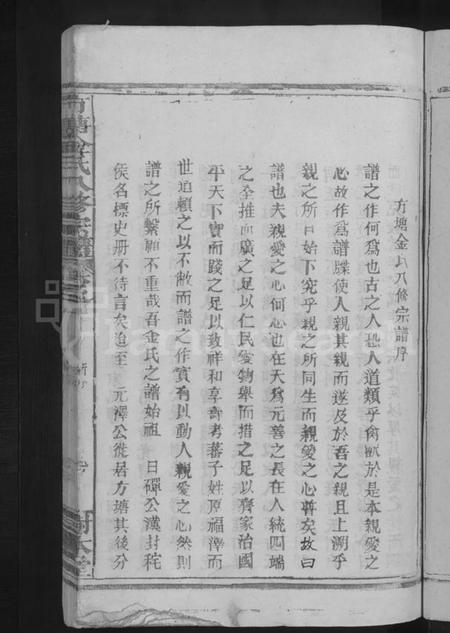 方塘金氏八修宗譜序
譜之作何為也古之人恐人道類乎禽獸於是本親愛之
心故作為譜牒使人親其親而遂及於吾之親且上溯乎
親之所自始下究乎親之所同生而親愛之心尊矣故曰
譜也夫親愛之心何心也在天為元善之長在人統四端
之全推而廣之足以仁民愛物舉而措之足以齊家治國
平天下實而踐之足以致祥和享壽考蕃子姓厚福澤而
世道賴之以不敝而譜之作實有以動人親愛之心然則
譜之所繫顧不重哉吾金氏之譜始祖 日磾公漢封秺
侯名標史册不待言矣迨至 元澤公徙居方塘其後分
方塘金氏八修宗譜